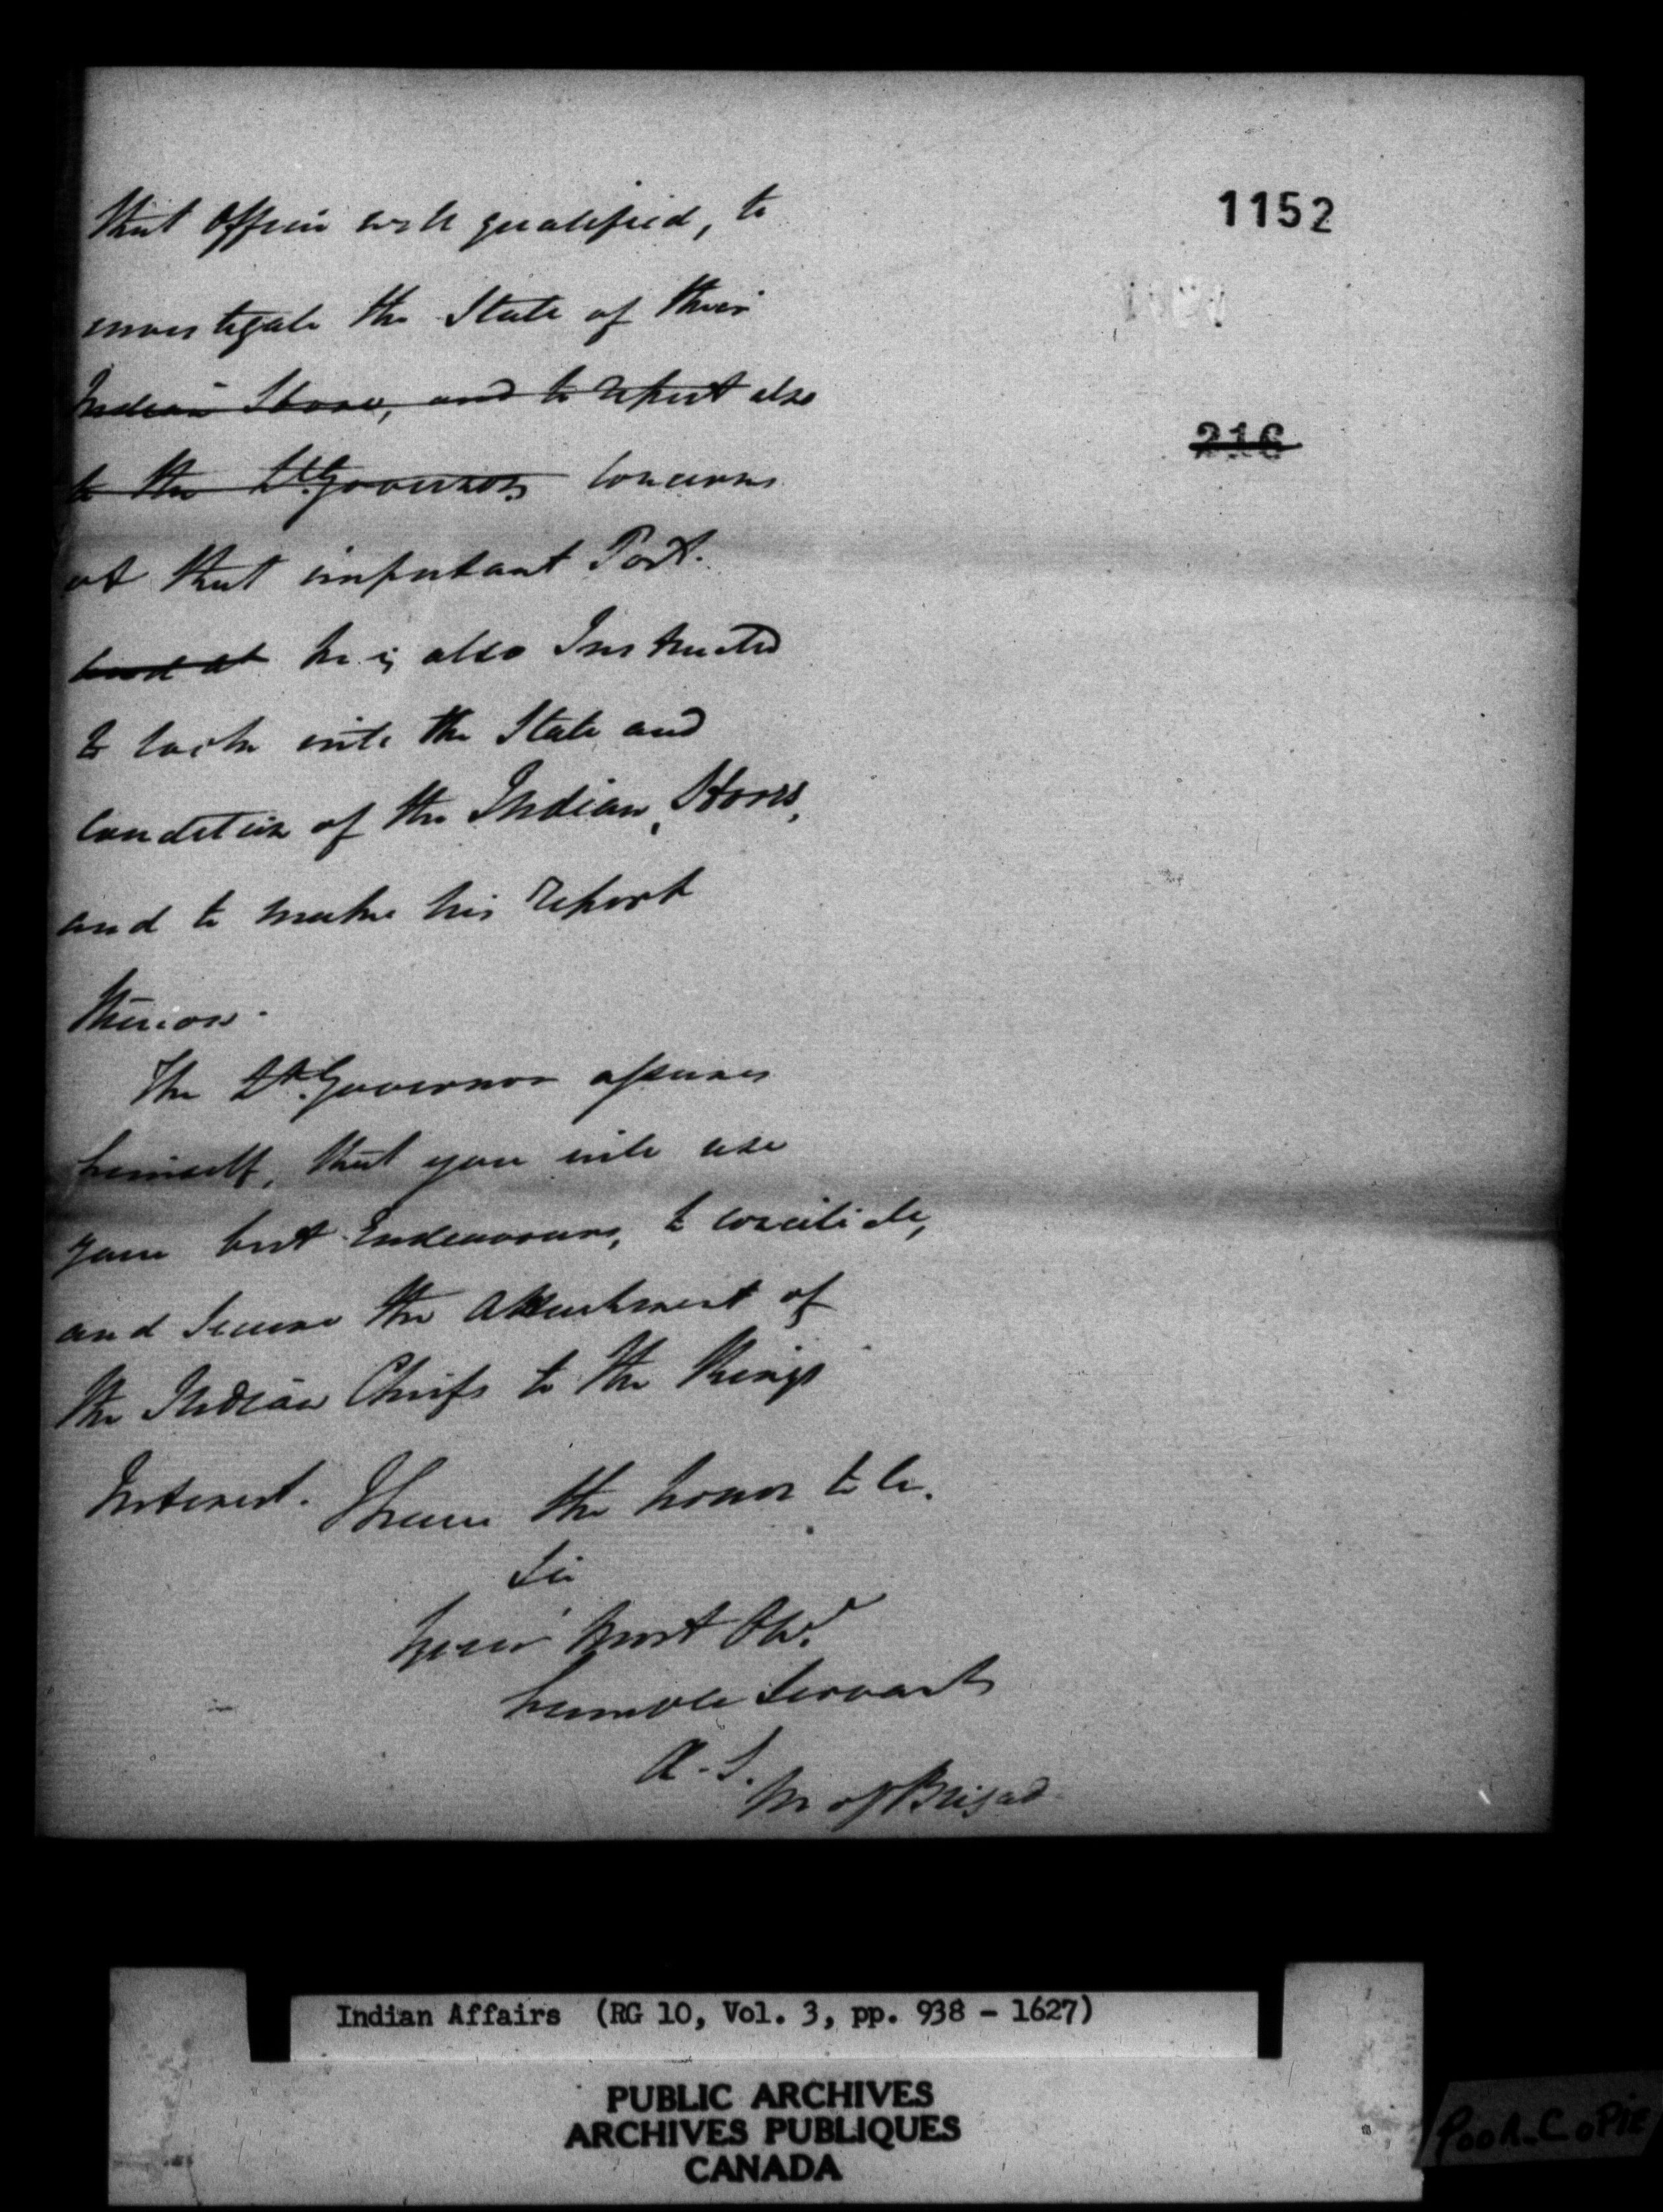 1152
that Officer well qualified, to
investigate the State of their
Indian Stores, and to report also
216
to the Lt. Governor concerns
at that important Post.
he is also Instructed
to look into the State and
Condition of the Indian Stores,
and to make his report
thereon.
The Lt. Governor assures
himself, that you will use
your best Endeavours, to conciliate,
and secure the Attachment of
the Indian Chiefs to the Kings
Interest. I have the honor to be.
Sir
your most Obt.
humble Servant
A. S.
M of Brigad
Indian Affairs (RG 10, Vol. 3, pp. 938 - 1627)
PUBLIC ARCHIVES
ARCHIVES PUBLIQUES
CANADA
POOR COPIE